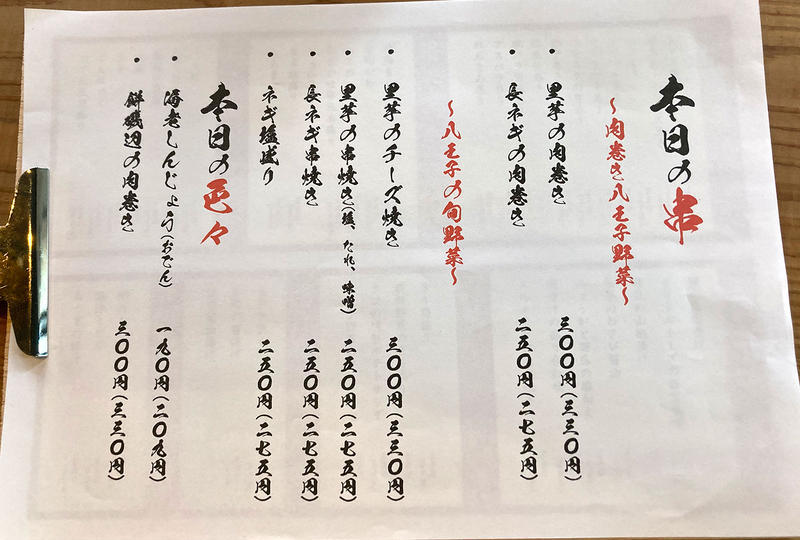 本日の串
～肉巻き八王子野菜～
・里芋の肉巻き 三〇〇円(三三〇円)
・長ネギの肉巻き 二五〇円(二七五円)
～八王子の旬野菜～
・里芋のチーズ焼き 三〇〇円(三三〇円)
・里芋の串焼き(塩、たれ、味噌) 二五〇円(二七五円)
・長ネギ串焼き 二五〇円(二七五円)
・ネギ塩盛り 二五〇円(二七五円)
本日の色々
・海老しんじょう(おでん) 一九〇円(二〇九円)
・餅磯辺の肉巻き 三〇〇円(三三〇円)